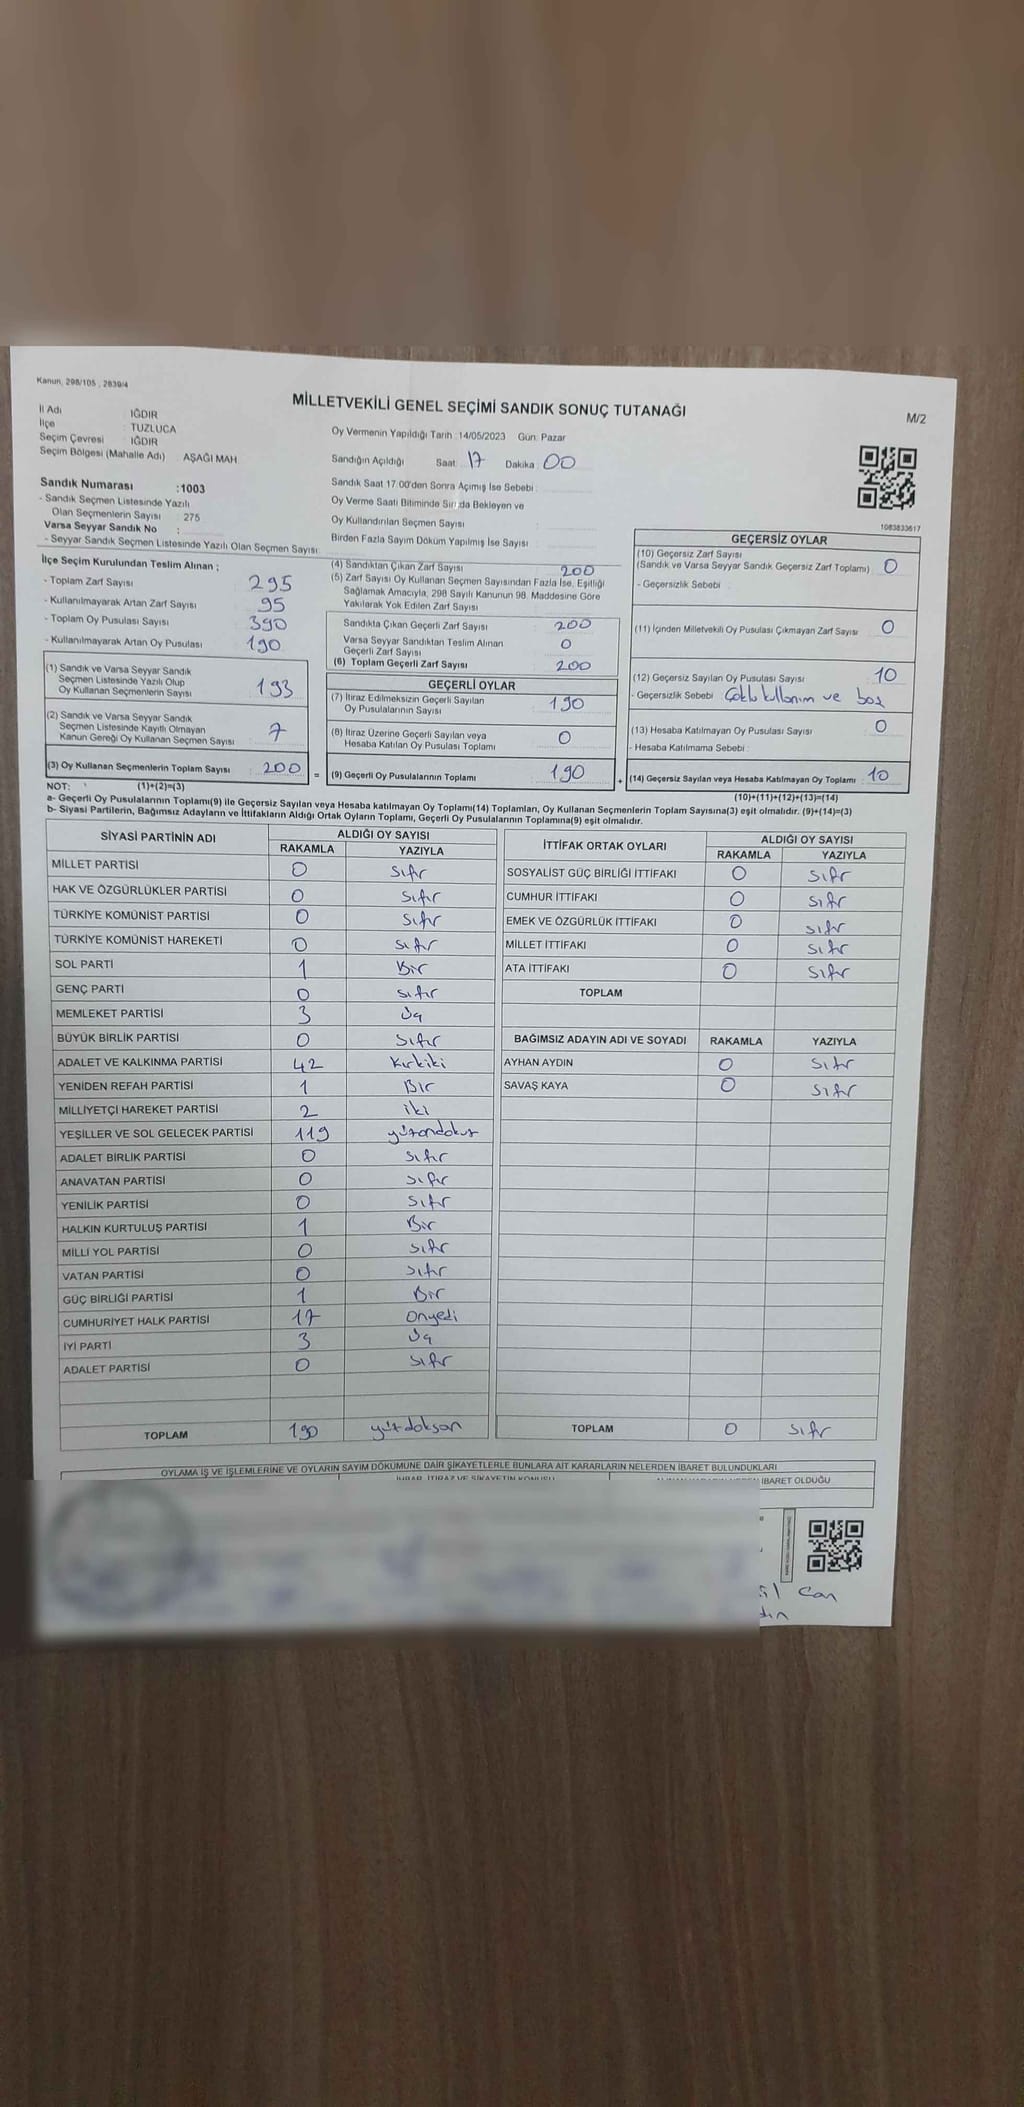 Kanun, 298/105 , 2839/4
MİLLETVEKİLİ GENEL SEÇİMİ SANDIK SONUÇ TUTANAĞI
M/2
İl Adı IĞDIR
İlçe : TUZLUCA
Seçim Çevresi IĞDIR
Seçim Bölgesi (Mahalle Adı) : AŞAĞI MAH.
Sandık Numarası :1003
- Sandık Seçmen Listesinde Yazılı
Olan Seçmenlerin Sayısı : 275
Varsa Seyyar Sandık No :
- Seyyar Sandık Seçmen Listesinde Yazılı Olan Seçmen Sayısı:
Oy Vermenin Yapıldığı Tarih :14/05/2023 Gün: Pazar
Sandığın Açıldığı Saat: 17 Dakika : 00
Sandık Saat 17:00'den Sonra Açımış İse Sebebi :
Oy Verme Saati Bitiminde Sırada Bekleyen ve
Oy Kullandırılan Seçmen Sayısı :
Birden Fazla Sayım Döküm Yapılmış İse Sayısı :
1083833617
İlçe Seçim Kurulundan Teslim Alınan ;
- Toplam Zarf Sayısı 295
- Kullanılmayarak Artan Zarf Sayısı 95
- Toplam Oy Pusulası Sayısı 390
- Kullanılmayarak Artan Oy Pusulası 190
(1) Sandık ve Varsa Seyyar Sandık
Seçmen Listesinde Yazılı Olup
Oy Kullanan Seçmenlerin Sayısı 193
(2) Sandık ve Varsa Seyyar Sandık
Seçmen Listesinde Kayıtlı Olmayan
Kanun Gereği Oy Kullanan Seçmen Sayısı 7
(3) Oy Kullanan Seçmenlerin Toplam Sayısı 200 =
(4) Sandıktan Çıkan Zarf Sayısı 200
(5) Zarf Sayısı Oy Kullanan Seçmen Sayısından Fazla İse, Eşitliği
Sağlamak Amacıyla, 298 Sayılı Kanunun 98. Maddesine Göre
Yakılarak Yok Edilen Zarf Sayısı
Sandıkta Çıkan Geçerli Zarf Sayısı 200
Varsa Seyyar Sandıktan Teslim Alınan
Geçerli Zarf Sayısı 0
(6) Toplam Geçerli Zarf Sayısı 200
GEÇERLİ OYLAR
(7) İtiraz Edilmeksizin Geçerli Sayılan
Oy Pusulalarının Sayısı 190
(8) İtiraz Üzerine Geçerli Sayılan veya
Hesaba Katılan Oy Pusulası Toplamı 0
(9) Geçerli Oy Pusulalarının Toplamı 190 +
GEÇERSİZ OYLAR
(10) Geçersiz Zarf Sayısı
(Sandık ve Varsa Seyyar Sandık Geçersiz Zarf Toplamı) 0
- Geçersizlik Sebebi :
(11) İçinden Milletvekili Oy Pusulası Çıkmayan Zarf Sayısı 0
(12) Geçersiz Sayılan Oy Pusulası Sayısı 10
- Geçersizlik Sebebi : Çoklu kullanım ve boş
(13) Hesaba Katılmayan Oy Pusulası Sayısı 0
- Hesaba Katılmama Sebebi :
(14) Geçersiz Sayılan veya Hesaba Katılmayan Oy Toplamı 10
NOT: (1)+(2)=(3)
(10)+(11)+(12)+(13)=(14)
a- Geçerli Oy Pusulalarının Toplamı(9) ile Geçersiz Sayılan veya Hesaba katılmayan Oy Toplamı(14) Toplamları, Oy Kullanan Seçmenlerin Toplam Sayısına(3) eşit olmalıdır. (9)+(14)=(3)
b- Siyasi Partilerin, Bağımsız Adayların ve İttifakların Aldığı Oyların Toplamı, Geçerli Oy Pusulalarının Toplamına(9) eşit olmalıdır.
SİYASİ PARTİNİN ADI
ALDIĞI OY SAYISI
RAKAMLA YAZIYLA
MİLLET PARTİSİ 0 sıfır
HAK VE ÖZGÜRLÜKLER PARTİSİ 0 sıfır
TÜRKİYE KOMÜNİST PARTİSİ 0 sıfır
TÜRKİYE KOMÜNİST HAREKETİ 0 sıfır
SOL PARTİ 1 Bir
GENÇ PARTİ 0 sıfır
MEMLEKET PARTİSİ 3 Üç
BÜYÜK BİRLİK PARTİSİ 0 sıfır
ADALET VE KALKINMA PARTİSİ 42 Kırkiki
YENİDEN REFAH PARTİSİ 1 Bir
MİLLİYETÇİ HAREKET PARTİSİ 2 iki
YEŞİLLER VE SOL GELECEK PARTİSİ 119 yüzondokuz
ADALET BİRLİK PARTİSİ 0 sıfır
ANAVATAN PARTİSİ 0 sıfır
YENİLİK PARTİSİ 0 sıfır
HALKIN KURTULUŞ PARTİSİ 1 Bir
MİLLİ YOL PARTİSİ 0 sıfır
VATAN PARTİSİ 0 sıfır
GÜÇ BİRLİĞİ PARTİSİ 1 Bir
CUMHURİYET HALK PARTİSİ 17 Onyedi
İYİ PARTİ 3 Üç
ADALET PARTİSİ 0 sıfır
TOPLAM 190 yüzdoksan
İTTİFAK ORTAK OYLARI
ALDIĞI OY SAYISI
RAKAMLA YAZIYLA
SOSYALİST GÜÇ BİRLİĞİ İTTİFAKI 0 sıfır
CUMHUR İTTİFAKI 0 sıfır
EMEK VE ÖZGÜRLÜK İTTİFAKI 0 sıfır
MİLLET İTTİFAKI 0 sıfır
ATA İTTİFAKI 0 sıfır
TOPLAM
BAĞIMSIZ ADAYIN ADI VE SOYADI RAKAMLA YAZIYLA
AYHAN AYDIN 0 sıfır
SAVAŞ KAYA 0 sıfır
TOPLAM 0 sıfır
OYLAMA İŞ VE İŞLEMLERİNE VE OYLARIN SAYIM DÖKÜMÜNE DAİR ŞİKAYETLERLE BUNLARA AİT KARARLARIN NELERDEN İBARET BULUNDUKLARI
İHBAR, İTİRAZ VE ŞİKAYETİN KONUSU
İBARET OLDUĞU
Can